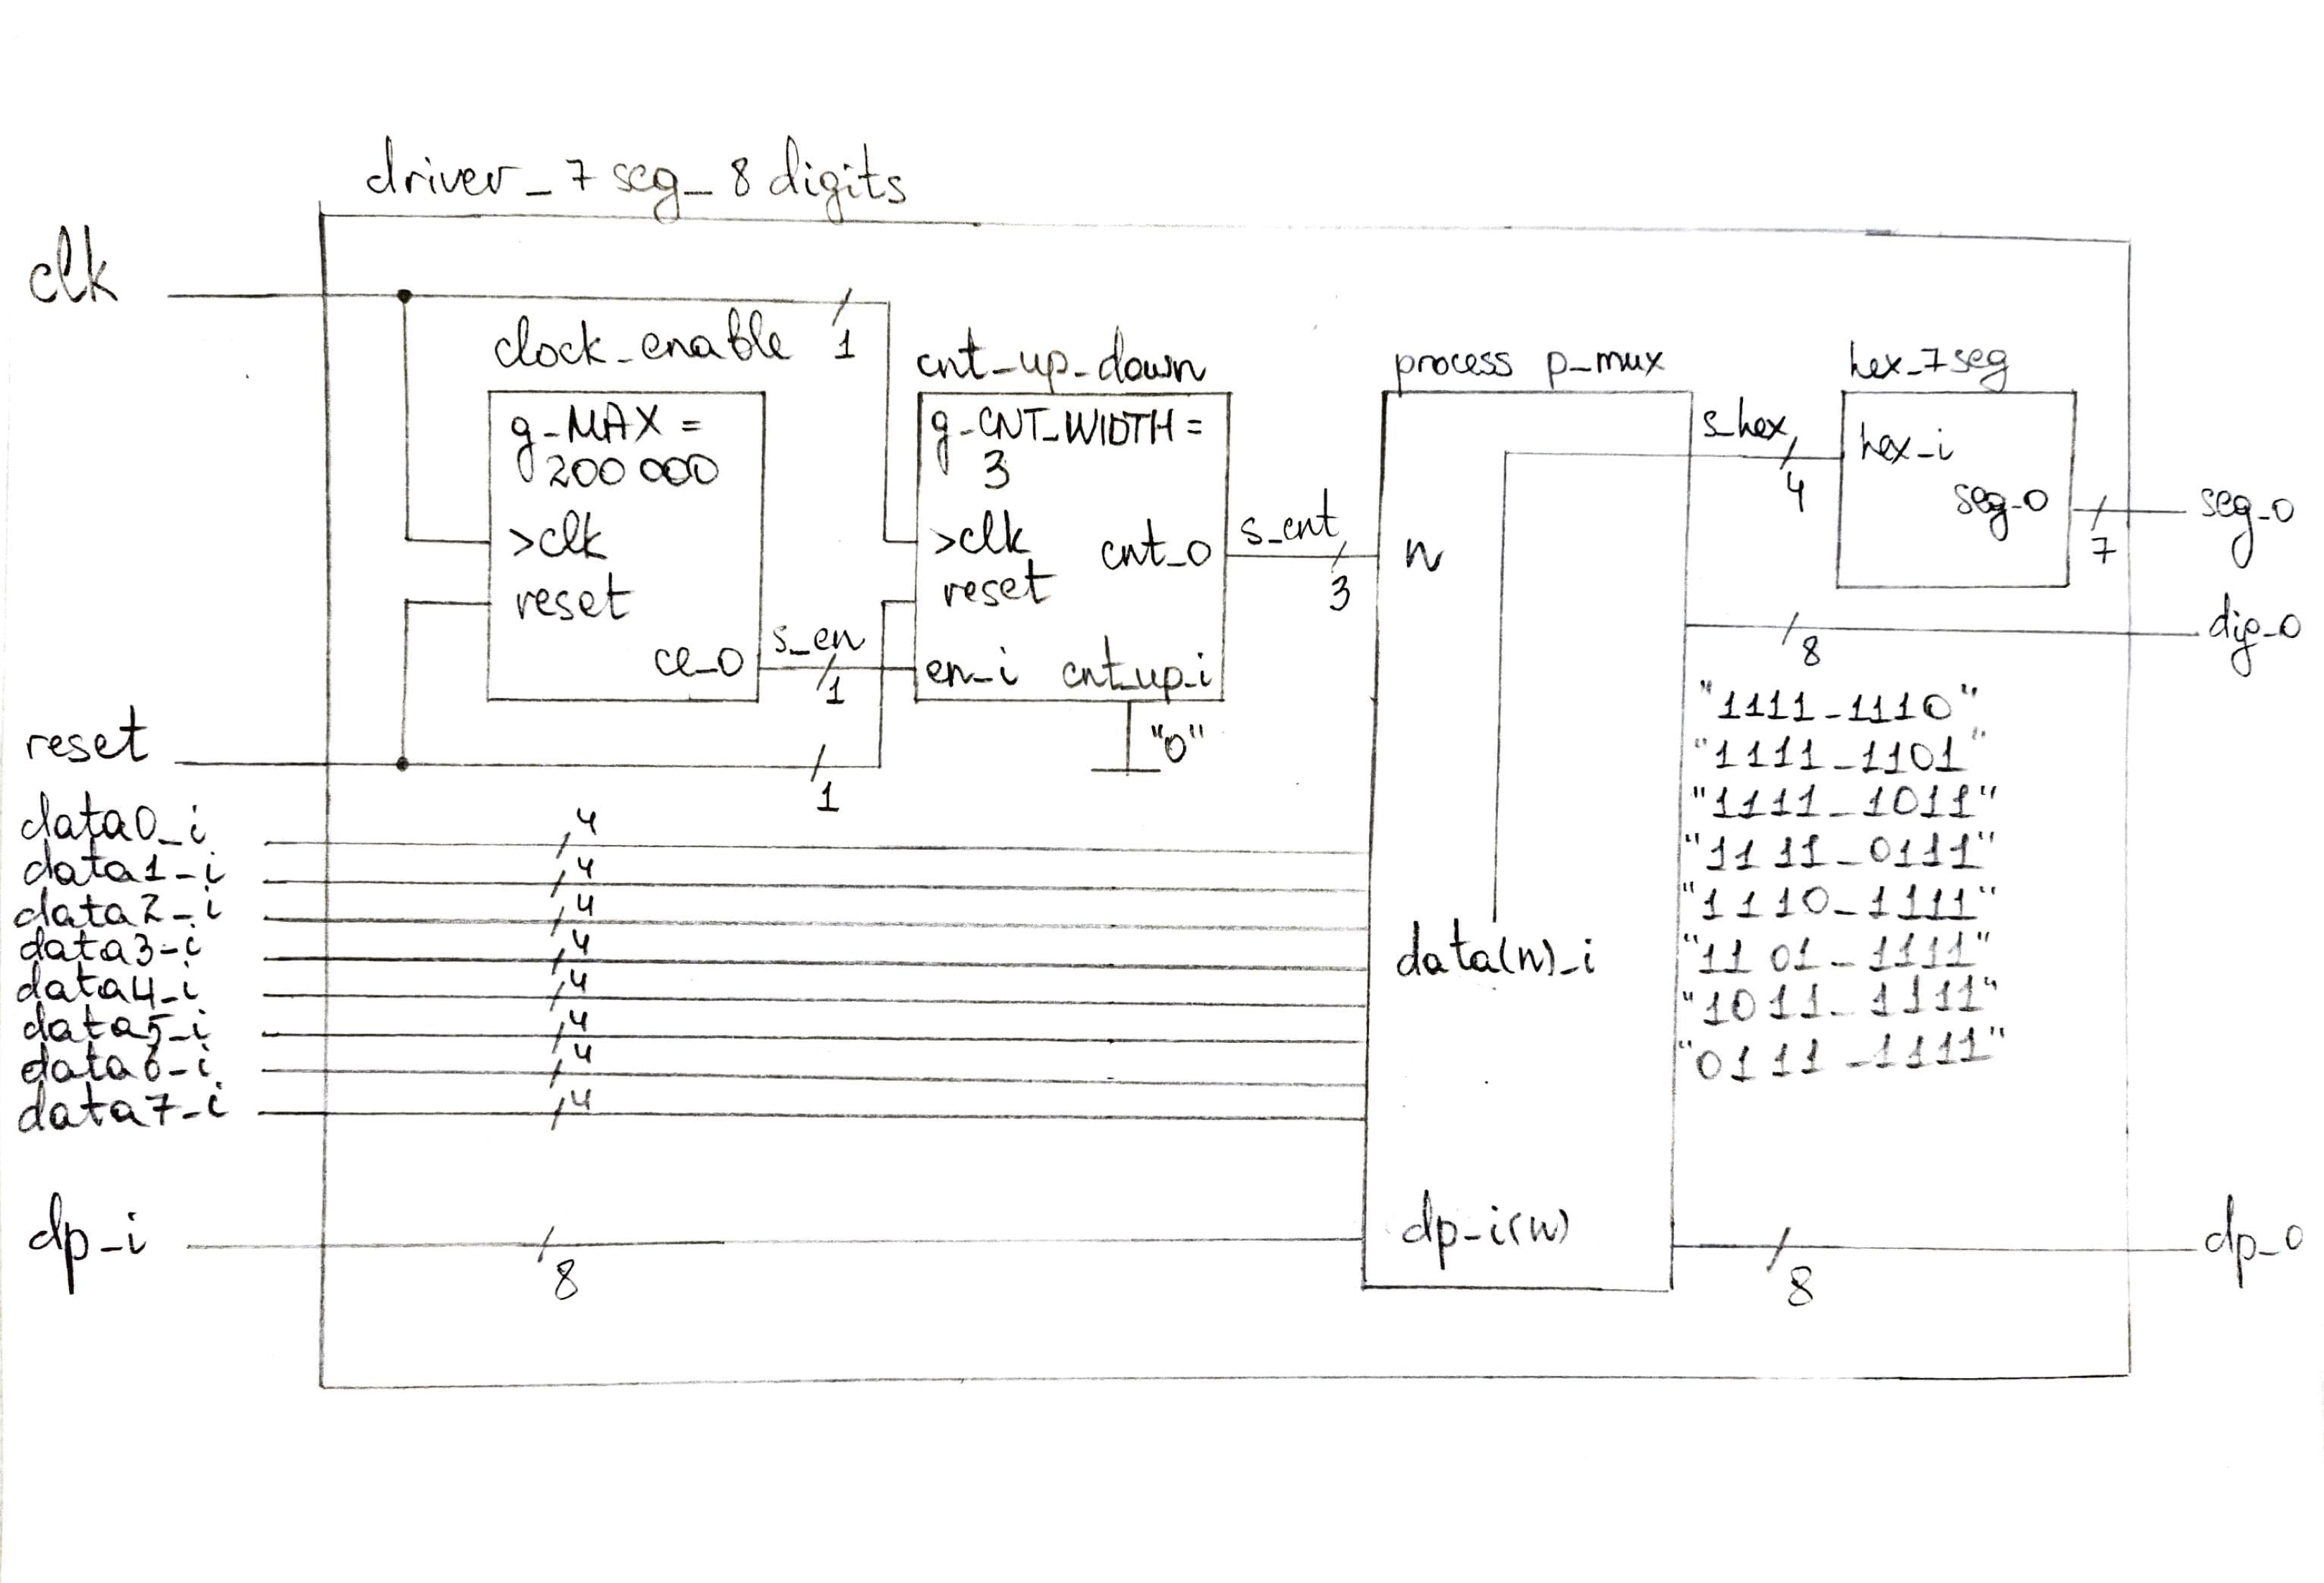 driver_7seg_8digits
clk
1
clock_enable
g_MAX =
200 000
>clk
reset
ce_0
s_en
1
cnt_up_down
g_CNT_WIDTH =
3
>clk
reset
cnt_0
en_i
cnt_up_i
"0"
s_cnt
3
process p_mux
n
data(n)_i
dp_i(n)
s_hex
4
hex_7seg
hex_i
seg_0
7
seg_0
8
dig_0
"1111_1110"
"1111_1101"
"1111_1011"
"1111_0111"
"1110_1111"
"1101_1111"
"1011_1111"
"0111_1111"
reset
1
data0_i
4
data1_i
4
data2_i
4
data3_i
4
data4_i
4
data5_i
4
data6_i
4
data7_i
4
dp_i
8
8
dp_0